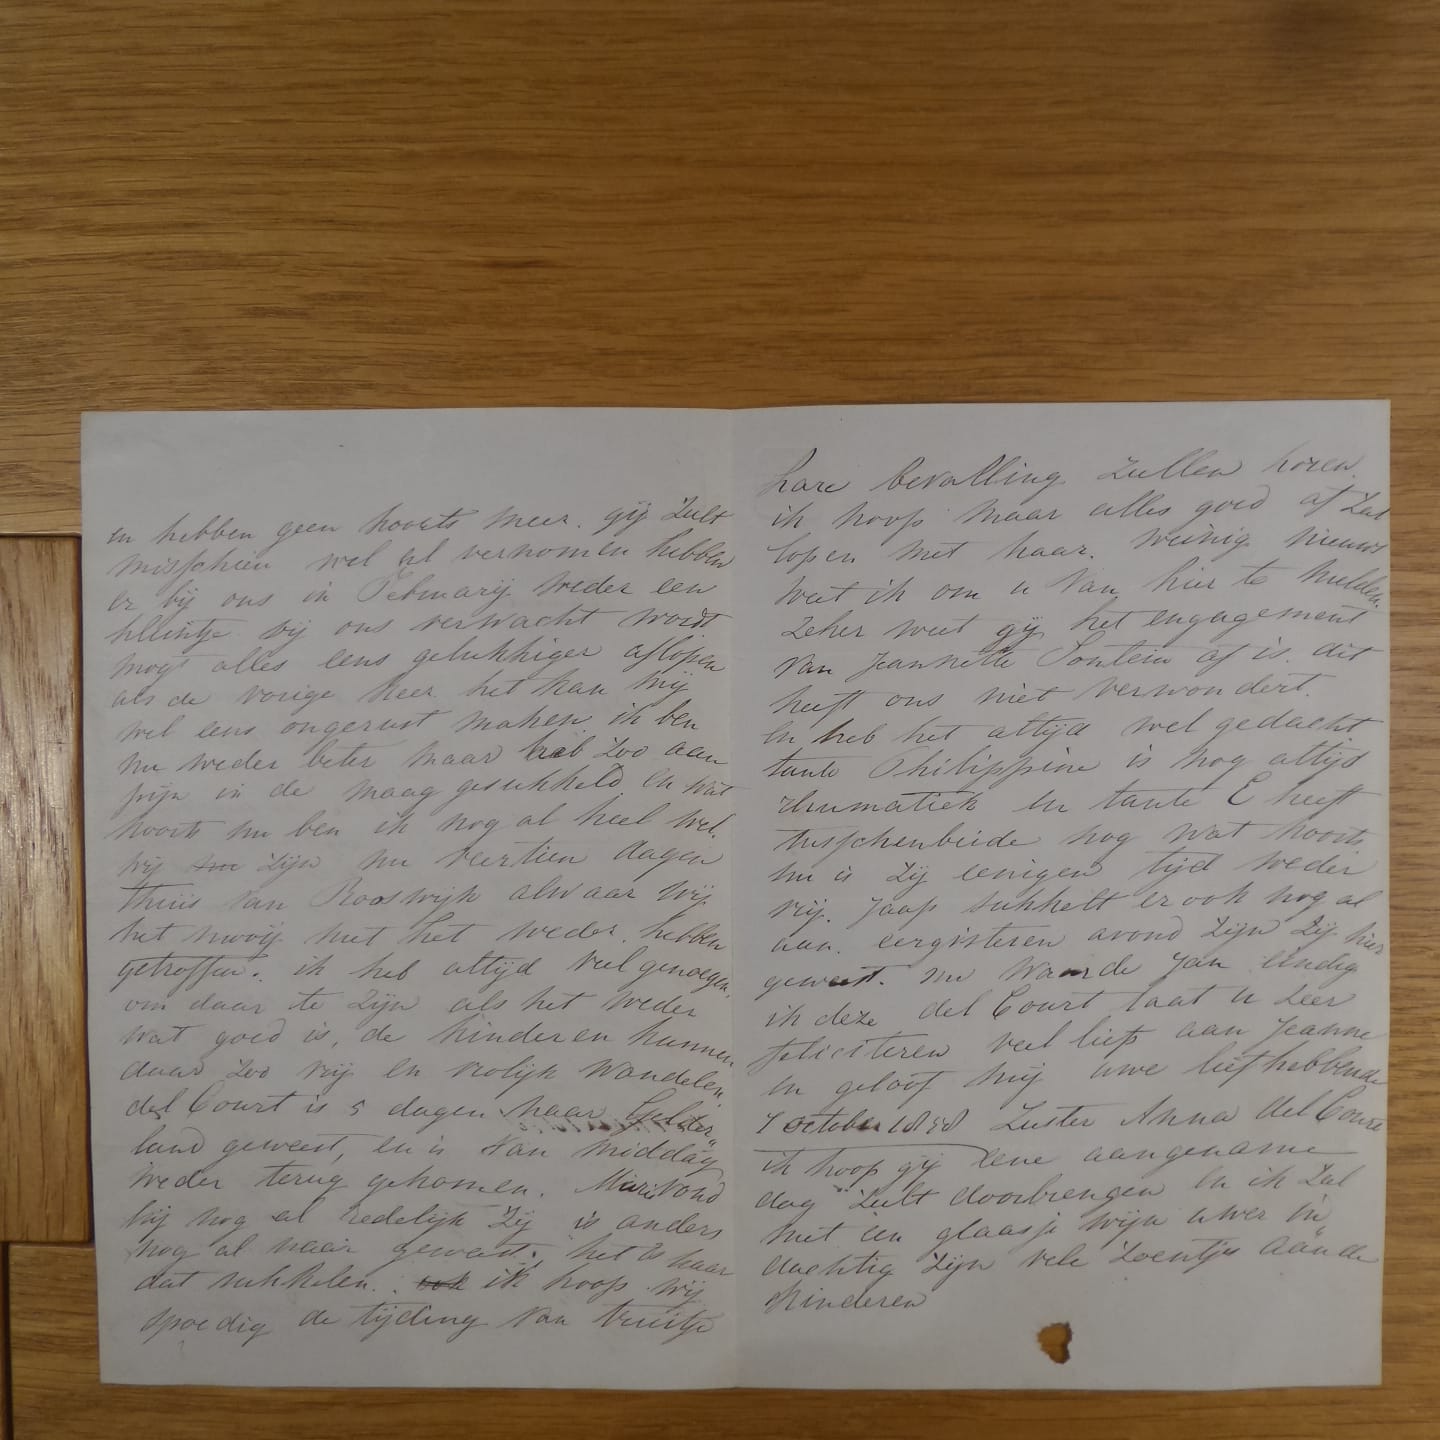 en hebben geen koorts meer. gij zult
misschien wel al vernomen hebben
er bij ons in Februarij weder een
kleintje bij ons verwacht wordt
mogt alles eens gelukkiger aflopen
als de vorige keer het kan mij
wel eens ongerust maken ik ben
nu weder beter maar heb zoo aan
pijn in de maag gesukkeld en wat
koorts nu ben ik nog al heel wel.
wij zijn nu veertien dagen
thuis van Rooswijk alwaar wij
het mooij met het weder hebben
getroffen. ik heb altijd veel genoegen
om daar te zijn als het weder
wat goed is, de kinderen kunnen
daar zoo vrij en vrolijk wandelen
del Court is 5 dagen naar Gelder
land geweest, en is van middag
weder terug gekomen. Marie vond
hij nog al redelijk zij is anders
nog al naar geweest. het is haar
dat sukkelen. ik hoop wij
spoedig de tijding van Truitje
hare bevalling zullen horen
ik hoop maar alles goed af zal
lopen met haar. weinig nieuws
weet ik om u van hier te melden.
zeker weet gij het engagement
van Jeannette Fontein af is. dit
heeft ons niet verwondert.
en heb het altijd wel gedacht
tante Philippine is nog altijd
rhumatiek en tante E heeft
tusschenbeide nog wat koorts
nu is zij eenigen tijd weder
vrij. Jaap sukkelt er ook nog al
aan. eergisteren avond zijn zij hier
geweest. nu waarde Jan eindig
ik deze del Court laat u zeer
feliciteren veel liefs aan Jeanne
en geloof mij uwe liefhebbende
7 october 1858 Zuster Anna del Court
ik hoop gij eene aangename
dag zult doorbrengen en ik zal
met een glaasje wijn uwer in
dachtig zijn vele zoentjes aan de
kinderen